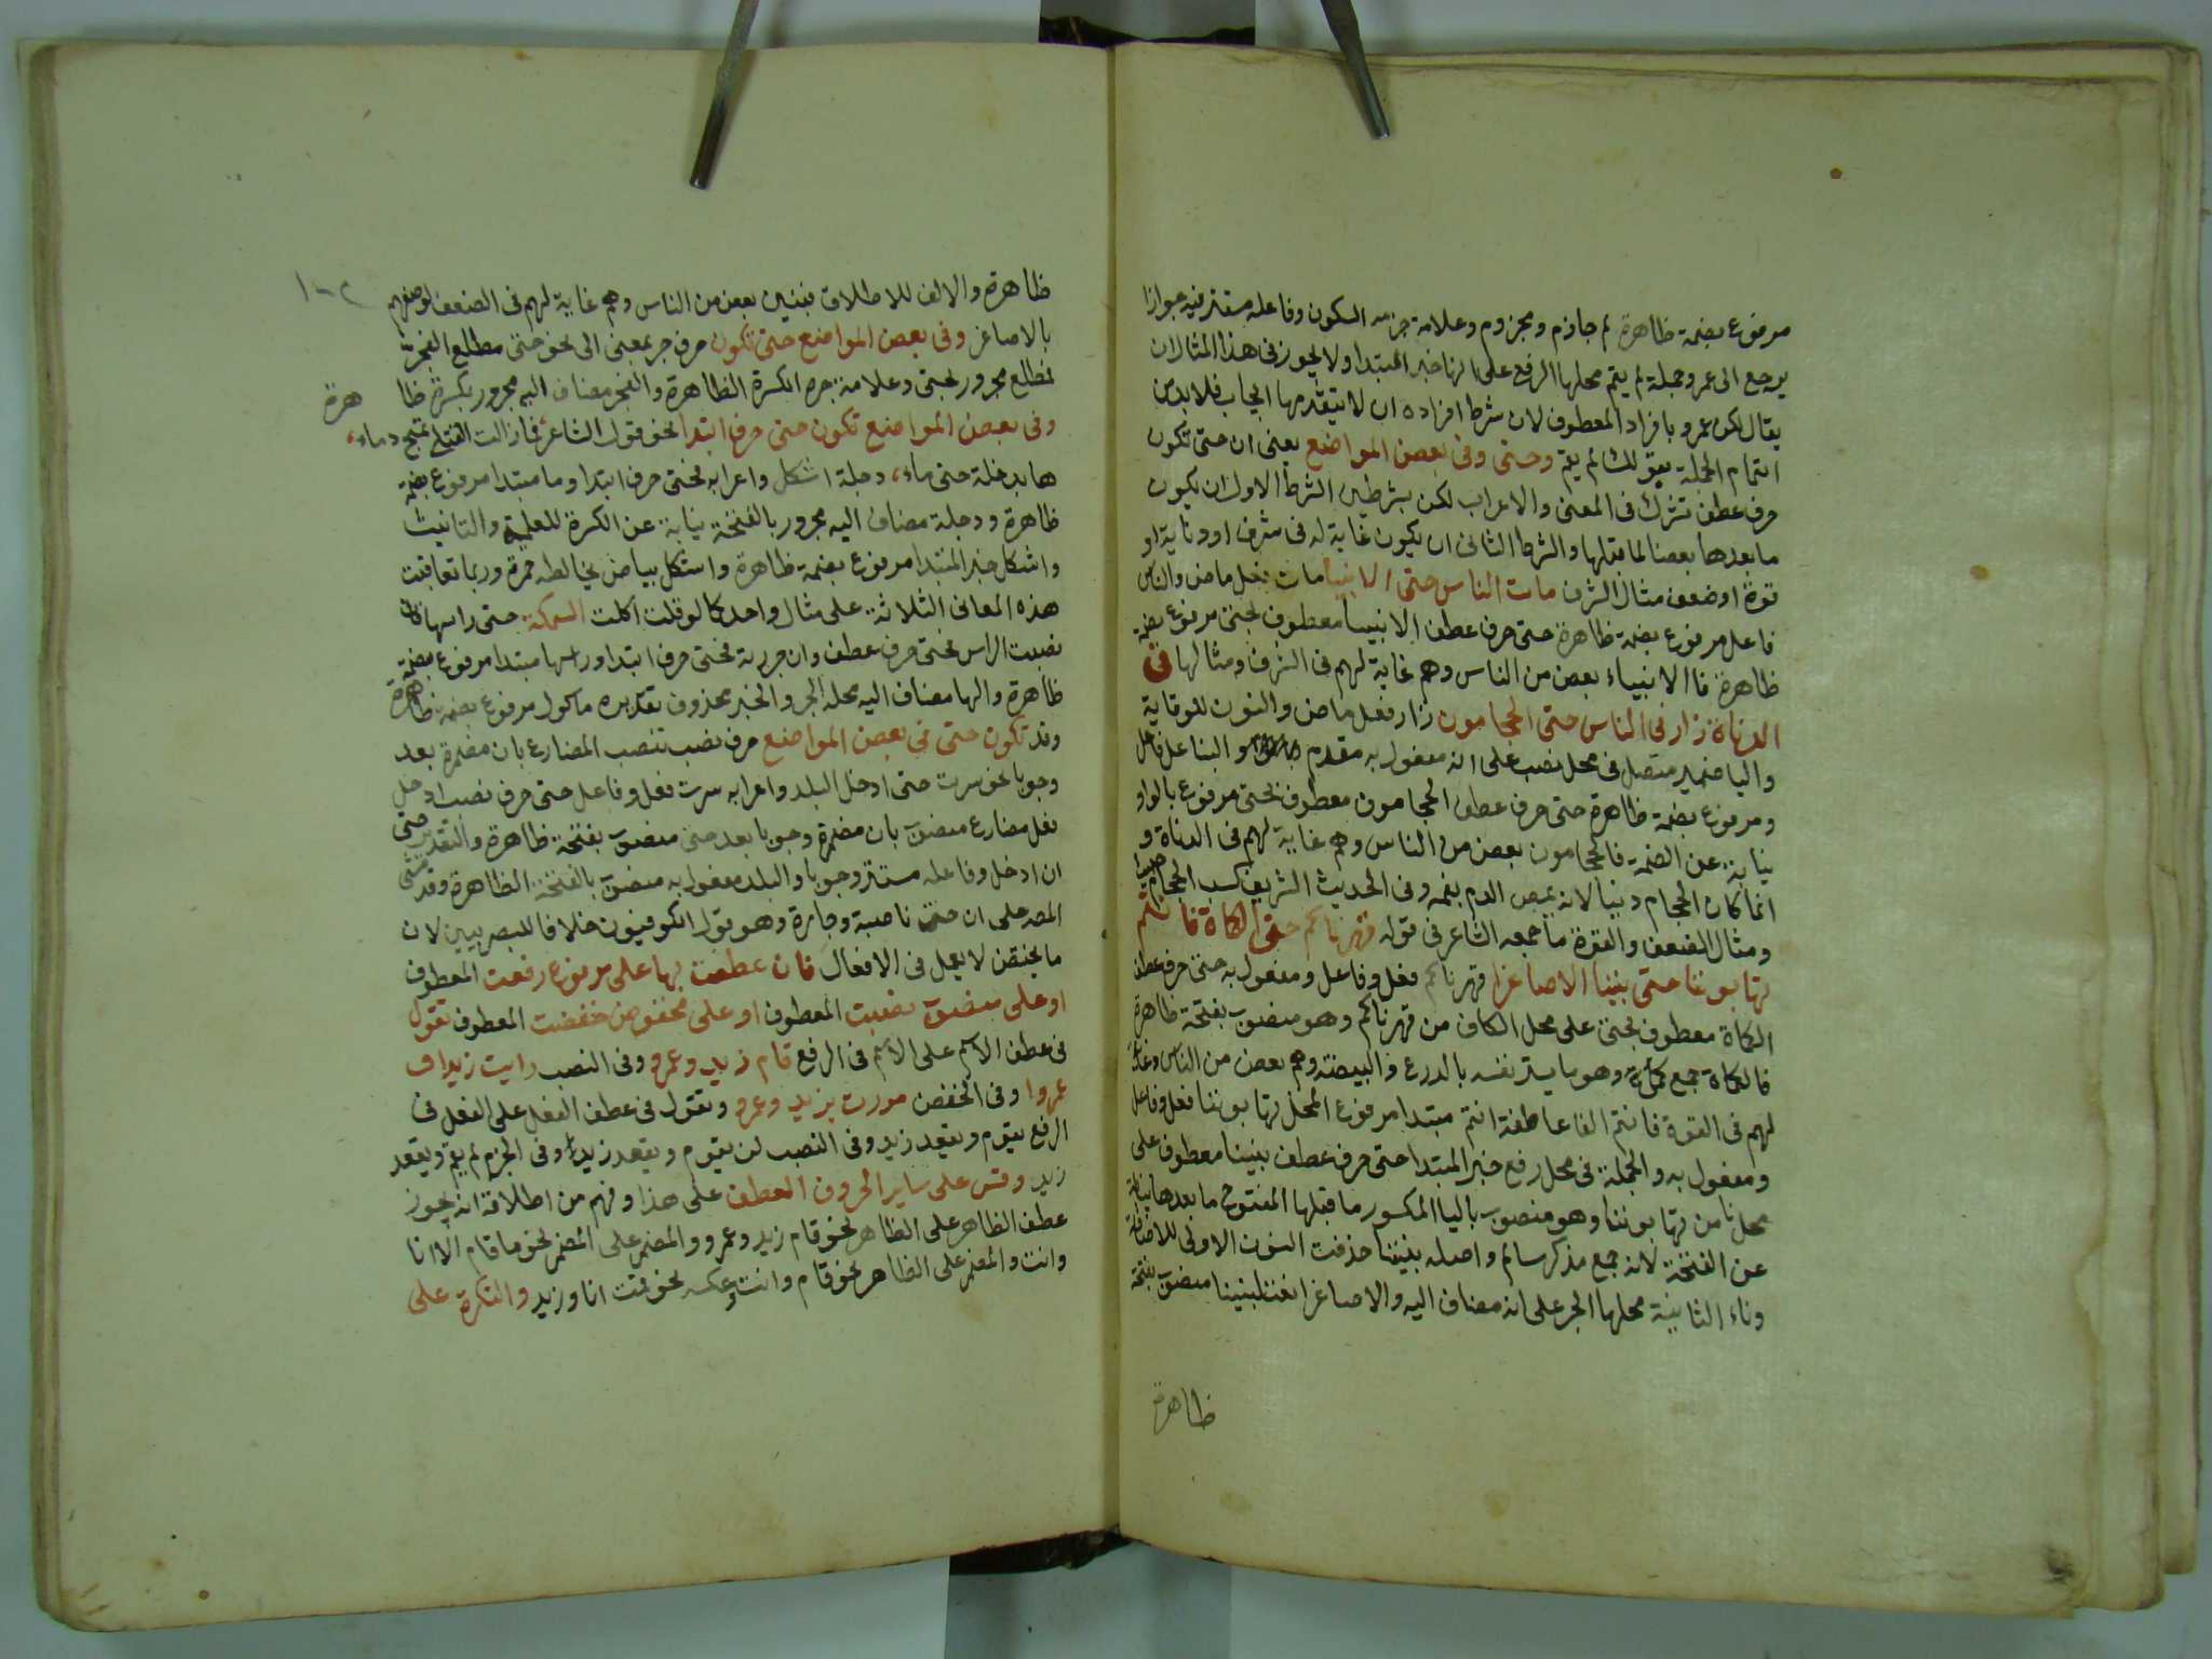 مرفوع بضمة ظاهرة لم جازم ومجزوم وعلامة جزمه السكون وفاعله مستتر فيه جوازا
يرجع الى عمرو وجملة لم يقم محلها الرفع على انها خبر المبتدا ولا يجوز فى هذا المثال ان
يقال لكن عمرو بافراد المعطوف لان شرط افراده ان لا يتقدمها ايجاب فلا بد من
اتمام الجملة بقولك لم يقم وحتى وفى بعض المواضع يعنى ان حتى تكون
حرف عطف تشرك فى المعنى والاعراب لكن بشرطين الشرط الاول ان يكون
ما بعدها بعضا لما قبلها والشرط الثانى ان يكون غاية له فى شرف او دناية او
قوة او ضعف مثال الشرف مات الناس حتى الانبيا مات فعل ماض والناس
فاعل مرفوع بضمة ظاهرة حتى حرف عطف الانبيا معطوف بحتى مرفوع بضمة
ظاهرة فاالانبياء بعض من الناس وهم غاية لهم فى الشرف ومثالها فى
الدناة زارنى الناس حتى الحجامون زار فعل ماض والنون للوقاية
واليا ضمير متصل فى محل نصب على انه مفعول به مقدم والناس فاعل
ومرفوع بضمة ظاهرة حتى حرف عطف الحجامون معطوف بحتى مرفوع بالواو
نيابة عن الضمة فالحجامون بعض من الناس وهم غاية لهم فى الدناة و
انما كان الحجام دنيا لانه يمص الدم بفمه وفى الحديث الشريف كسب الحجام خبيث
ومثال الضعف والقوة ما جمعه الشاعر فى قوله قهرناكم حتى الكماة فانتم
تهابوننا حتى بنينا الاصاغرا قهرناكم فعل وفاعل ومفعول به حتى حرف عطف
الكماة معطوف بحتى على محل الكاف من قهرناكم وهو منصوب بفتحة ظاهرة
فالكماة جمع وهو ما يستر نفسه بالدرع والبيضة وهم بعض من الناس وغاية
لهم فى القوة فانتم الفا عاطفة انتم مبتدا مرفوع المحل تهابوننا فعل وفاعل
ومفعول به والجملة فى محل رفع خبر المبتدا حتى حرف عطف بنينا معطوف على
محل نا من تهابوننا وهو منصوب باليا المكسور ما قبلها المفتوح ما بعدها نيابة
عن الفتحة لانه جمع مذكر سالم واصله بنيننا حذفت النون الاولى للاضافة
وناء الثانية محلها الجر على انه مضاف اليه والاصاغرا نعت لبنينا منصوب بفتحة
ظاهرة
ظاهرة والالف للاطلاق فبنين بعض من الناس وهم غاية لهم فى الضعف لوصفهم
بالاصاغر وفى بعض المواضع حتى تكون حرف جر بمعنى الى نحو حتى مطلع الفجر
فمطلع مجرور بحتى وعلامة جره الكسرة الظاهرة والفجر مضاف اليه مجرور بكسرة ظا هرة
وفى بعض المواضع تكون حتى حرف ابتدا نحو قول الشاعر فما زالت القتلى تمج دماء
ها بدجلة حتى ماء دجلة اشكل واعرابه فحتى حرف ابتدا وما مبتدا مرفوع بضمة
ظاهرة ودجلة مضاف اليه مجرور بالفتحة نيابة عن الكسرة للعلمية والتانيث
واشكل خبر المبتدا مرفوع بضمة ظاهرة واشكل بياض يخالطه حمرة وربما تعاقبت
هذه المعانى الثلاثة على مثال واحد كما لو قلت اكلت السمكة حتى راسها فان
نصبت الراس فحتى حرف عطف وان جررته فحتى حرف ابتدا وراسها مبتدا مرفوع بضمة
ظاهرة والها مضاف اليه محله الجر والخبر محذوف تقديره ماكول مرفوع بضمة ظاهرة
وقد تكون حتى فى بعض المواضع حرف نصب تنصب المضارع بان مضمرة بعد
وجوبا نحو سرت حتى ادخل البلد واعرابه سرت فعل وفاعل حتى حرف نصب ادخل
فعل مضارع منصوب بان مضمرة وجوبا بعد حتى منصوب بفتحة ظاهرة والتقدير حتى
ان ادخل وفاعله مستتر وجوبا والبلد مفعول به منصوب بالفتحة الظاهرة وقد مشى
المصه على ان حتى ناصبة وجارة وهو قول الكوفيون خلافا للبصريين لان
ما يختص لا يعمل فى الافعال فان عطفت بها على مرفوع رفعت المعطوف
او على منصوب نصبت المعطوف او على مخفوض خفضت المعطوف تقول
فى عطف الاسم على الاسم فى الرفع قام زيد وعمرو وفى النصب رايت زيدا و
عمروا وفى الخفض مررت بزيد وعمرو وتقول فى عطف الفعل على الفعل فى
الرفع يقوم ويقعد زيد وفى النصب لن يقوم ويقعد زيد وفى الجزم لم يقم ويقعد
زيد وقس على ساير الحروف العطف على هذا وفهم من اطلاقه انه يجوز
عطف الظاهر على الظاهر نحو قام زيد وعمرو والمضمر على المضمر نحو ما قام الا انا
وانت والمضمر على الظاهر نحو قام وانت وعكسه نحو قمت انا وزيد والنكرة على